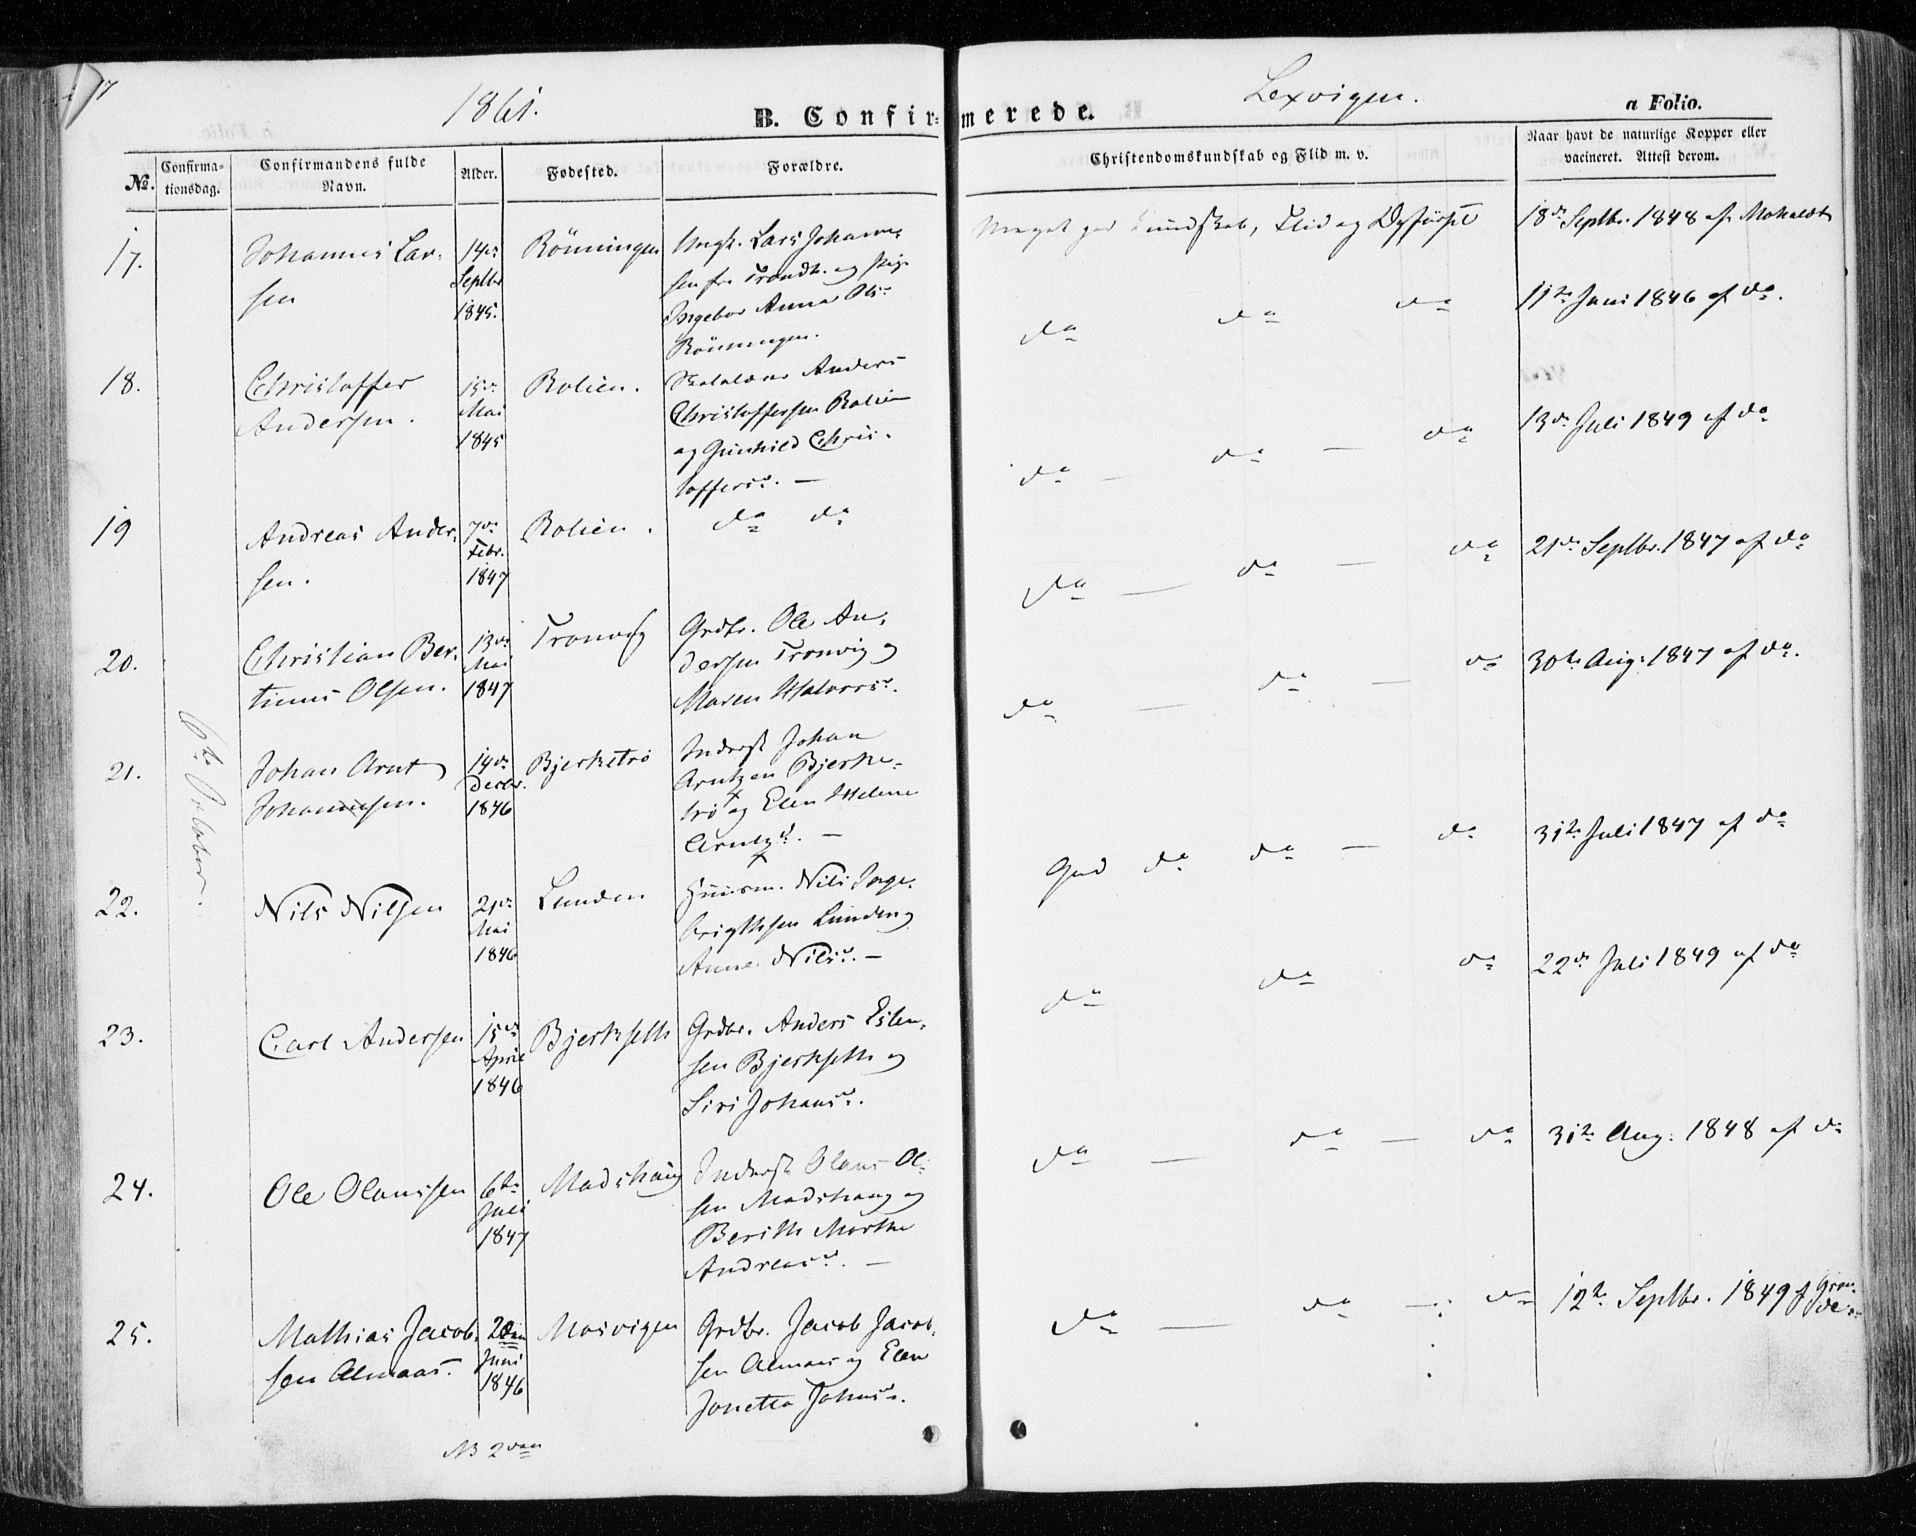 1861.
Lexvigen.
B. Confirmerede.
a Folio.
No.
Confirma-
tionsdag.
Confirmandens fulde
Navn.
Alder.
Fødested.
Forældre.
Christendomskundskab og Flid m. v.
Naar havt de naturlige Kopper eller
vacineret. Attest derom.
6te October.
17.
Johannes Lar-
sen
14de
Septbr
1845.
Rönningen
Ungk. Lars Johanne-
sen fr. Trondh. og Pige
Ingebor Anna Olsd.
Rönningen.
Meget god Kundskab, Flid og Opförsel
18de Septbr. 1848 af
18.
Christoffer
Andersen.
15de
Mai
1845
Rolien.
Anders
Christoffersen Rolien
og Gunhild Chris-
toffersd. —
do do do
11te Juni 1846 af do.
19
Andreas Ander-
sen.
7de
Febr.
1847
Rolien.
do do
do — do — do
13de Juli 1849 af do
20.
Christian Ber-
tinus Olsen.
13de
Mai
1847
Tronvig
Grdbr. Ole An-
dersen Tronvig og
Maren Halvorsd.
do — do — do
21de Septbr. 1847 af do
21.
Johan Arnt
Johannesen.
14de
Decbr.
1846
Bjerketrö
Inderst Johan
Arntzen Bjerke-
trö og Elen Helene
Arntzd. —
do — do — do
30te Aug: 1847 af do.
22.
Nils Nilsen
21de
Mai
1846
Lunden
Huusm. Nils Inge-
brigthsen Lunden og
Anne Nilsd. —
God do do — do
31te Juli 1847 af do
23.
Carl Andersen
15de
April
1846
Bjerkseth
Grdbr. Anders Esten-
sen Bjerkseth og
Siri Johansd.
do do do
22de Juli 1849 af do
24.
Ole Olaussen
6te
Juli
1847
Madshaug
Inderst Olaus Ol-
sen Madshaug og
Berith Marthe
Andreasd. —
do — do — do
31te Aug: 1848 af do
25.
Mathias Jacob-
sen Almaas.
2den
Juni
1846
Mosvigen
Grdbr. Jacob Jacob-
sen Almaas og Elen
Jonetta Johnsd.
do — do — do
12te Septbr. 1849 f
NB 2den